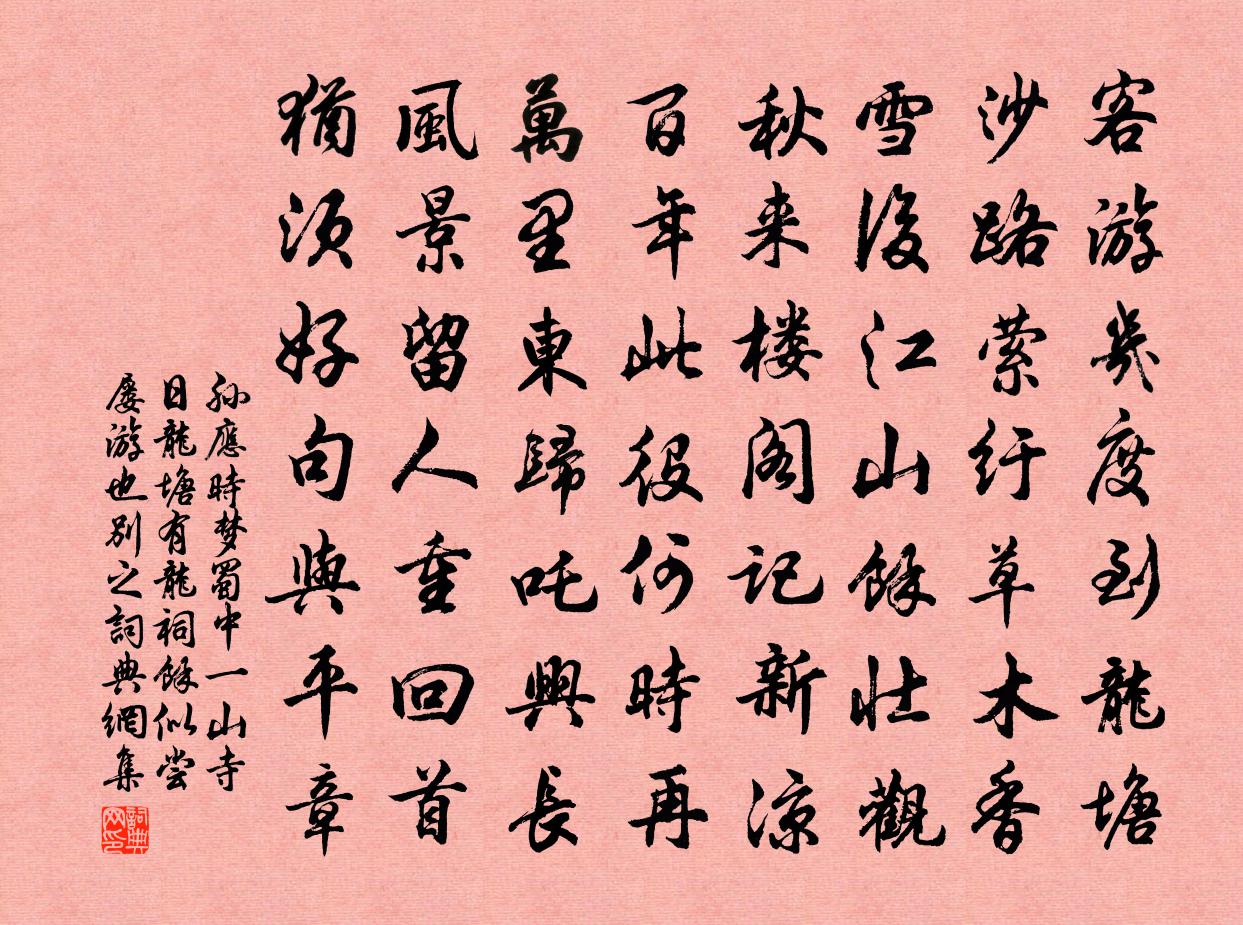 客游幾度到龍塘
沙路萦紆草木香
雪後江山餘壮觀
秋来楼阁記新凉
百年此役何時再
萬里東歸吒興長
風景留人重回首
猶须好句與平章
孙應時梦蜀中一山寺
日龍塘有龍祠餘似尝
屡游也别之詞典網集
詞典網印